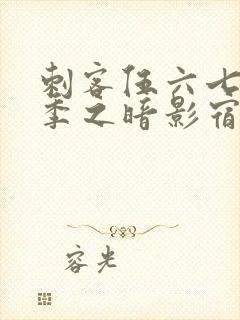 刺客伍六七
季之暗影宿
容光